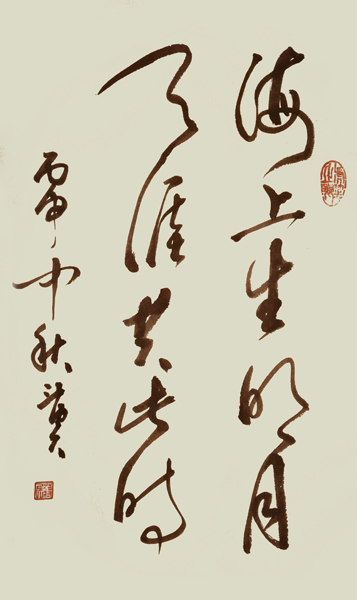 海上生明月
天涯共此时
丙申中秋